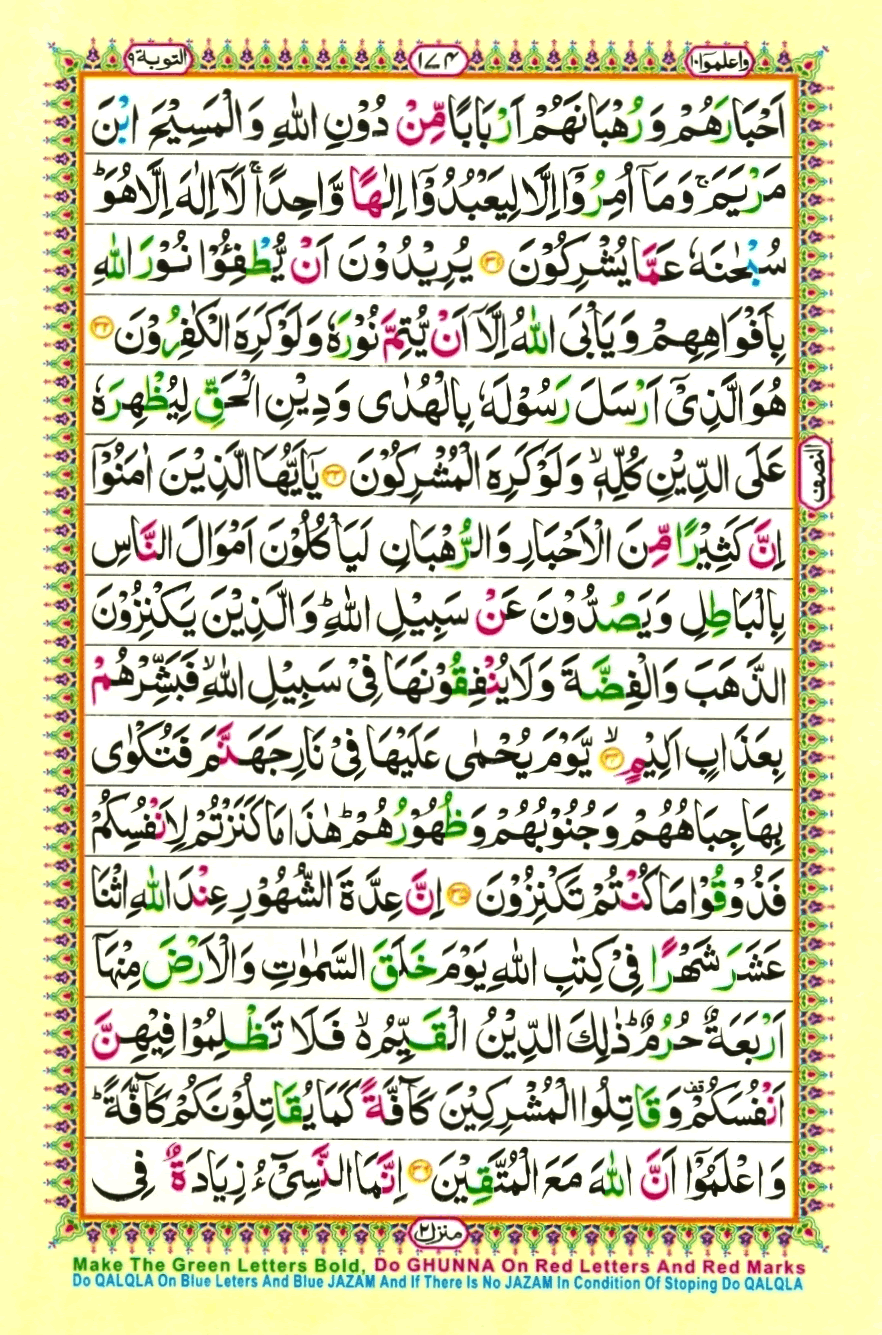 واعلموا ١٠ ١٧٤ التوبة ٩
اَحْبَارَهُمْ وَرُهْبَانَهُمْ اَرْبَابًا مِّنْ دُوْنِ اللّٰهِ وَالْمَسِيْحَ ابْنَ
مَرْيَمَ ۚ وَمَاۤ اُمِرُوْۤا اِلَّا لِيَعْبُدُوْۤا اِلٰهًا وَّاحِدًا ۚ لَاۤ اِلٰهَ اِلَّا هُوَ ؕ
سُبْحٰنَهٗ عَمَّا يُشْرِكُوْنَ ۝۳۱ يُرِيْدُوْنَ اَنْ يُّطْفِـُٔوْا نُوْرَ اللّٰهِ
بِاَفْوَاهِهِمْ وَيَاْبَى اللّٰهُ اِلَّاۤ اَنْ يُّتِمَّ نُوْرَهٗ وَلَوْ كَرِهَ الْكٰفِرُوْنَ ۝۳۲
هُوَ الَّذِيْۤ اَرْسَلَ رَسُوْلَهٗ بِالْهُدٰى وَدِيْنِ الْحَقِّ لِيُظْهِرَهٗ
عَلَى الدِّيْنِ كُلِّهٖ ۙ وَلَوْ كَرِهَ الْمُشْرِكُوْنَ ۝۳۳ يٰۤاَيُّهَا الَّذِيْنَ اٰمَنُوْۤا
النصف
اِنَّ كَثِيْرًا مِّنَ الْاَحْبَارِ وَالرُّهْبَانِ لَيَاْكُلُوْنَ اَمْوَالَ النَّاسِ
بِالْبَاطِلِ وَيَصُدُّوْنَ عَنْ سَبِيْلِ اللّٰهِ ؕ وَالَّذِيْنَ يَكْنِزُوْنَ
الذَّهَبَ وَالْفِضَّةَ وَلَا يُنْفِقُوْنَهَا فِيْ سَبِيْلِ اللّٰهِ ۙ فَبَشِّرْهُمْ
بِعَذَابٍ اَلِيْمٍ ۙ۝۳۴ يَّوْمَ يُحْمٰى عَلَيْهَا فِيْ نَارِ جَهَنَّمَ فَتُكْوٰى
بِهَا جِبَاهُهُمْ وَجُنُوْبُهُمْ وَظُهُوْرُهُمْ ؕ هٰذَا مَا كَنَزْتُمْ لِاَنْفُسِكُمْ
فَذُوْقُوْا مَا كُنْتُمْ تَكْنِزُوْنَ ۝۳۵ اِنَّ عِدَّةَ الشُّهُوْرِ عِنْدَ اللّٰهِ اثْنَا
عَشَرَ شَهْرًا فِيْ كِتٰبِ اللّٰهِ يَوْمَ خَلَقَ السَّمٰوٰتِ وَالْاَرْضَ مِنْهَاۤ
اَرْبَعَةٌ حُرُمٌ ؕ ذٰلِكَ الدِّيْنُ الْقَيِّمُ ۙ۬ فَلَا تَظْلِمُوْا فِيْهِنَّ
اَنْفُسَكُمْ قف وَقَاتِلُوا الْمُشْرِكِيْنَ كَاۤفَّةً كَمَا يُقَاتِلُوْنَكُمْ كَاۤفَّةً ؕ
وَاعْلَمُوْۤا اَنَّ اللّٰهَ مَعَ الْمُتَّقِيْنَ ۝۳۶ اِنَّمَا النَّسِيْٓءُ زِيَادَةٌ فِي
منزل ٢
Make The Green Letters Bold, Do GHUNNA On Red Letters And Red Marks
Do QALQLA On Blue Leters And Blue JAZAM And If There Is No JAZAM In Condition Of Stoping Do QALQLA